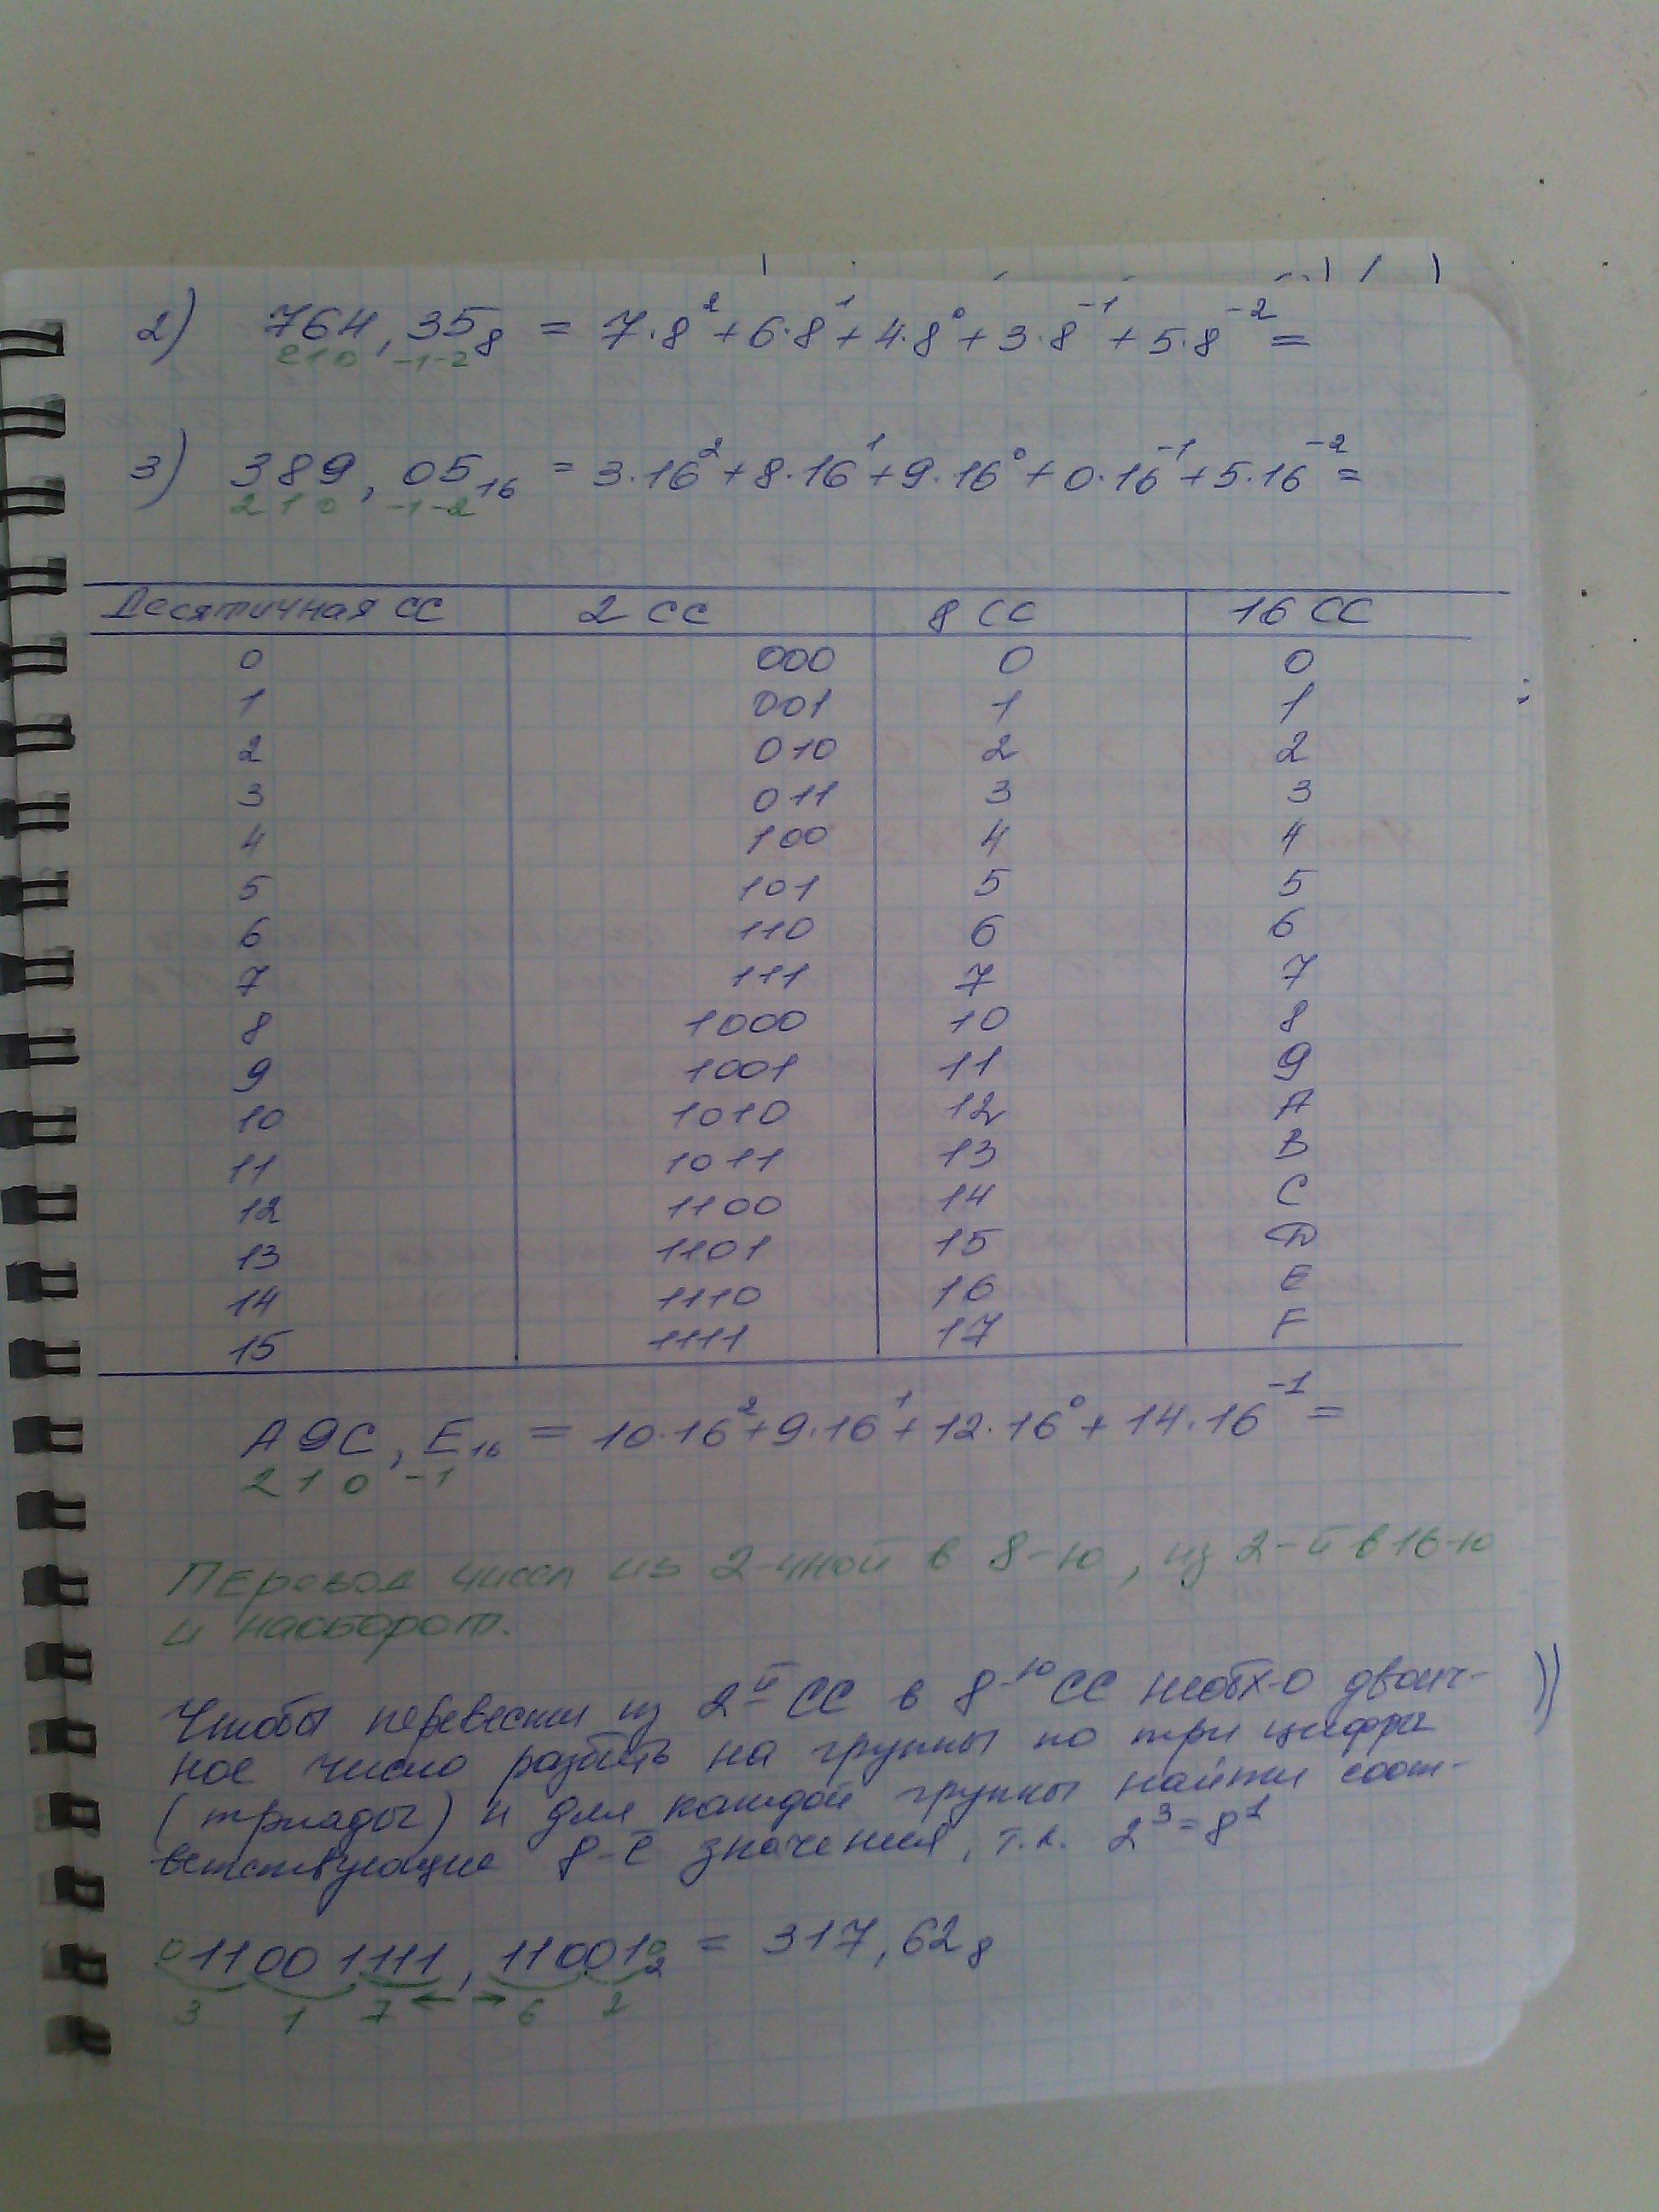 2) 764,35₈ = 7·8² + 6·8¹ + 4·8⁰ + 3·8⁻¹ + 5·8⁻² =
2 1 0 -1 -2
3) 389,05₁₆ = 3·16² + 8·16¹ + 9·16⁰ + 0·16⁻¹ + 5·16⁻² =
2 1 0 -1 -2
Десятичная СС 2 СС 8 СС 16 СС
0 000 0 0
1 001 1 1
2 010 2 2
3 011 3 3
4 100 4 4
5 101 5 5
6 110 6 6
7 111 7 7
8 1000 10 8
9 1001 11 9
10 1010 12 A
11 1011 13 B
12 1100 14 C
13 1101 15 D
14 1110 16 E
15 1111 17 F
A9C,E₁₆ = 10·16² + 9·16¹ + 12·16⁰ + 14·16⁻¹ =
2 1 0 -1
Перевод чисел из 2-чной в 8-ю, из 2-й в 16-ю
и наоборот.
Чтобы перевести из 2й СС в 8-ю СС необх-о двоич-
ное число разбить на группы по три цифры
(триады) и для каждой группы найти соот-
ветствующие 8-е значения, т.к. 2³=8¹
011001111,110010₂ = 317,62₈
3 1 7 ← → 6 2